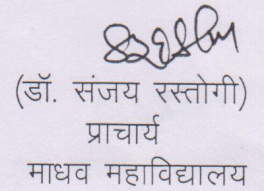 (डॉ. संजय रस्तोगी)
प्राचार्य
माधव महाविद्यालय